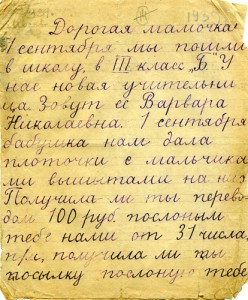 193
Дорогая мамочка!
1 сентября мы пошли
в школу, в III класс „Б". У
нас новая учительни
ца. Зовут её Варвара
Николаевна. 1 сентября
бабушка нам дала
плоточки с мальчика
ми вышытами на них.
Получила ли ты перево
дом 100 руб. послоным
тебе нами от 31 числа,
получила ли ты
посылку послоную тебе